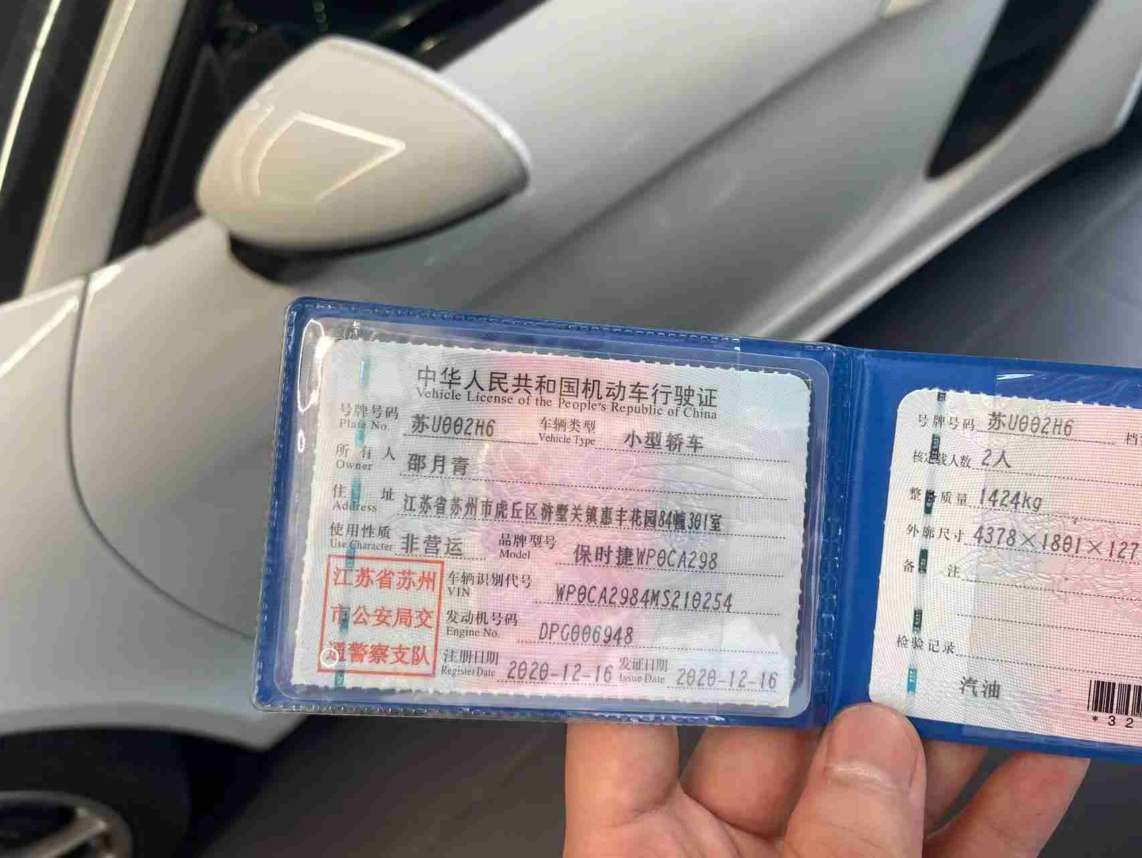 中华人民共和国机动车行驶证
Vehicle License of the People's Republic of China
号牌号码 苏U002H6 车辆类型 小型轿车
Plate No. Vehicle Type
所有人 邵月青
Owner
住址 江苏省苏州市虎丘区浒墅关镇惠丰花园84幢301室
Address
使用性质 非营运 品牌型号 保时捷WP0CA298
Use Character Model
江苏省苏州
市公安局交
通警察支队
车辆识别代号 WP0CA2984MS210254
VIN
发动机号码 DPG006948
Engine No.
注册日期 2020-12-16 发证日期 2020-12-16
Register Date Issue Date
号牌号码 苏U002H6 档
核定载人数 2人
整备质量 1424kg
外廓尺寸 4378×1801×127
备注
检验记录
汽油
*32